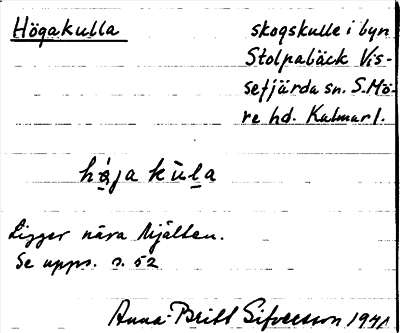 Högakulla
skogskulle i byn
Stolpabäck Vis-
sefjärda sn. S. Mö-
re hd. Kalmar l.
håja kùla
Ligger nära Mjälten.
Se upps. s. 52
Anna-Britt Sifversson 1941